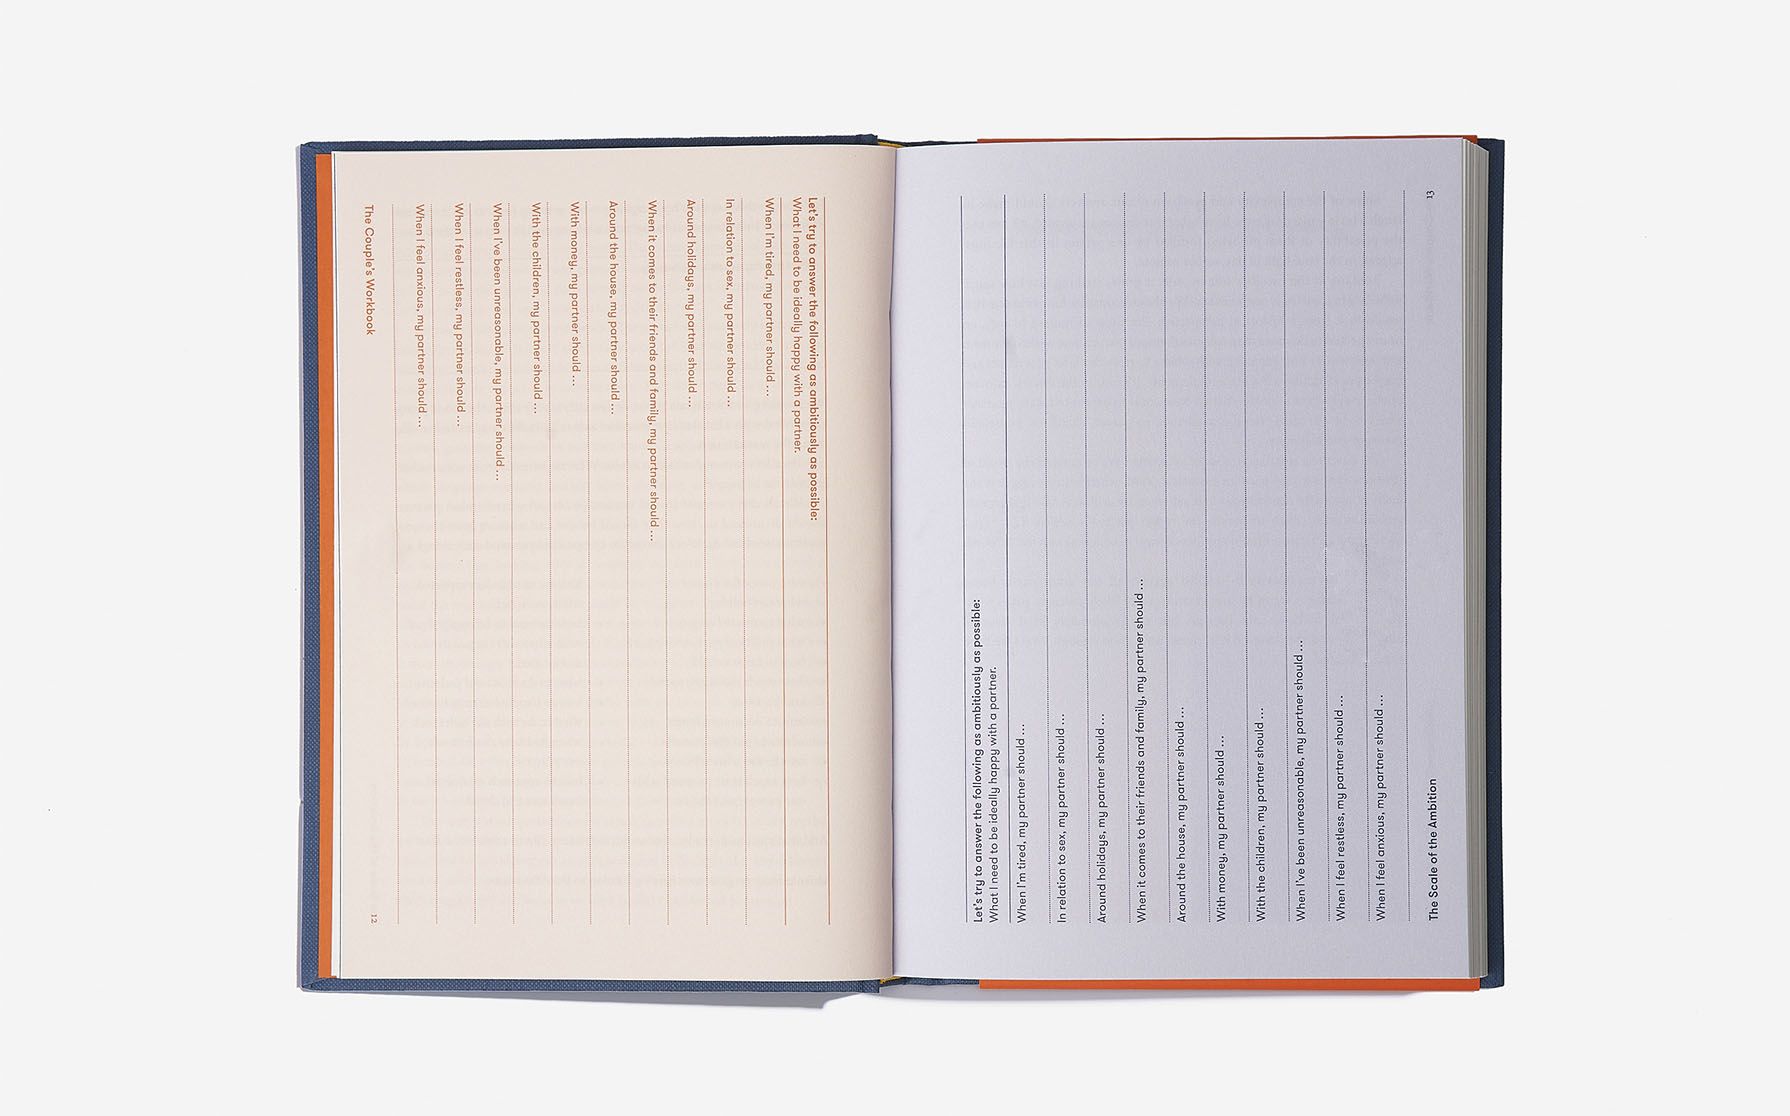 Let's try to answer the following as ambitiously as possible:
What I need to be ideally happy with a partner.
When I'm tired, my partner should ...
In relation to sex, my partner should ...
Around holidays, my partner should ...
When it comes to their friends and family, my partner should ...
Around the house, my partner should ...
With money, my partner should ...
With the children, my partner should ...
When I've been unreasonable, my partner should ...
When I feel restless, my partner should ...
When I feel anxious, my partner should ...
The Couple's Workbook
12
Let's try to answer the following as ambitiously as possible:
What I need to be ideally happy with a partner.
When I'm tired, my partner should ...
In relation to sex, my partner should ...
Around holidays, my partner should ...
When it comes to their friends and family, my partner should ...
Around the house, my partner should ...
With money, my partner should ...
With the children, my partner should ...
When I've been unreasonable, my partner should ...
When I feel restless, my partner should ...
When I feel anxious, my partner should ...
The Scale of the Ambition
13